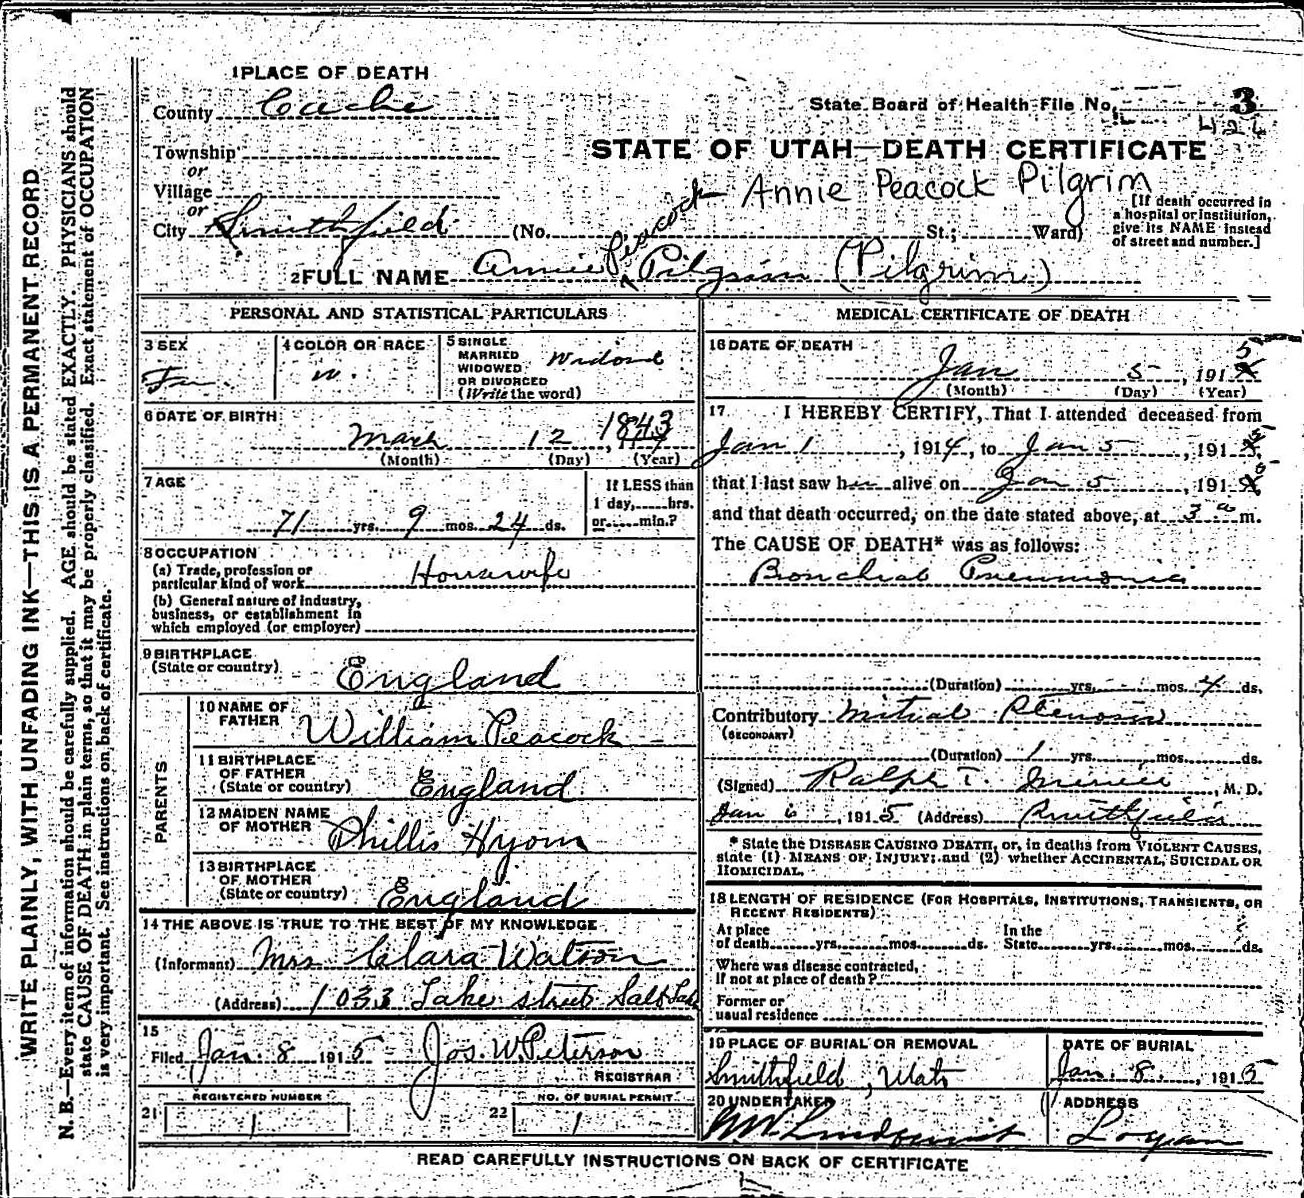 1 PLACE OF DEATH
County Cache
State Board of Health File No. 3
426
Township
or
Village
or
City Smithfield (No. St.; Ward)
STATE OF UTAH—DEATH CERTIFICATE
Annie Peacock Pilgrim
[If death occurred in
a hospital or institution,
give its NAME instead
of street and number.]
Peacock
2 FULL NAME Annie Pilgrim (Pilgrim)
PERSONAL AND STATISTICAL PARTICULARS
3 SEX
Fm.
4 COLOR OR RACE
w.
5 SINGLE
MARRIED
WIDOWED
OR DIVORCED
(Write the word)
Widowed
6 DATE OF BIRTH
March 12, 1843
(Month) (Day) (Year)
7 AGE
71 yrs. 9 mos. 24 ds.
If LESS than
1 day, hrs.
or min.?
8 OCCUPATION
(a) Trade, profession or
particular kind of work Housewife
(b) General nature of industry,
business, or establishment in
which employed (or employer)
9 BIRTHPLACE
(State or country) England
PARENTS
10 NAME OF
FATHER William Peacock
11 BIRTHPLACE
OF FATHER
(State or country) England
12 MAIDEN NAME
OF MOTHER Phillis Hyom
13 BIRTHPLACE
OF MOTHER
(State or country) England
14 THE ABOVE IS TRUE TO THE BEST OF MY KNOWLEDGE
(Informant) Mrs Clara Watson
(Address) 1033 Lake street Salt Lake
15
Filed Jan. 8 1915 Jos. W. Peterson
REGISTRAR
21 REGISTERED NUMBER
1
22 NO. OF BURIAL PERMIT
1
MEDICAL CERTIFICATE OF DEATH
16 DATE OF DEATH
Jan 5, 1915
(Month) (Day) (Year)
17 I HEREBY CERTIFY, That I attended deceased from
Jan 1, 1914, to Jan 5, 1915
that I last saw her alive on Jan 5, 1915
and that death occurred, on the date stated above, at 3 a m.
The CAUSE OF DEATH* was as follows:
Bronchial Pneumonia
(Duration) yrs. mos. 4 ds.
Contributory Mitral Stenosis
(SECONDARY)
(Duration) 1 yrs. mos. ds.
(Signed) Ralph T. , M. D.
Jan 6, 1915 (Address) Smithfield
* State the DISEASE CAUSING DEATH, or, in deaths from VIOLENT CAUSES,
state (1) MEANS OF INJURY; and (2) whether ACCIDENTAL, SUICIDAL OR
HOMICIDAL.
18 LENGTH OF RESIDENCE (FOR HOSPITALS, INSTITUTIONS, TRANSIENTS, OR
RECENT RESIDENTS)
At place
of death yrs. mos. ds.
In the
State yrs. mos. ds.
Where was disease contracted,
if not at place of death?
Former or
usual residence
19 PLACE OF BURIAL OR REMOVAL
Smithfield, Utah
DATE OF BURIAL
Jan. 8., 1915
20 UNDERTAKER
Lindquist
ADDRESS
Logan
READ CAREFULLY INSTRUCTIONS ON BACK OF CERTIFICATE
WRITE PLAINLY, WITH UNFADING INK—THIS IS A PERMANENT RECORD
N. B.—Every item of information should be carefully supplied. AGE should be stated EXACTLY. PHYSICIANS should
state CAUSE OF DEATH in plain terms, so that it may be properly classified. Exact statement of OCCUPATION
is very important. See instructions on back of certificate.